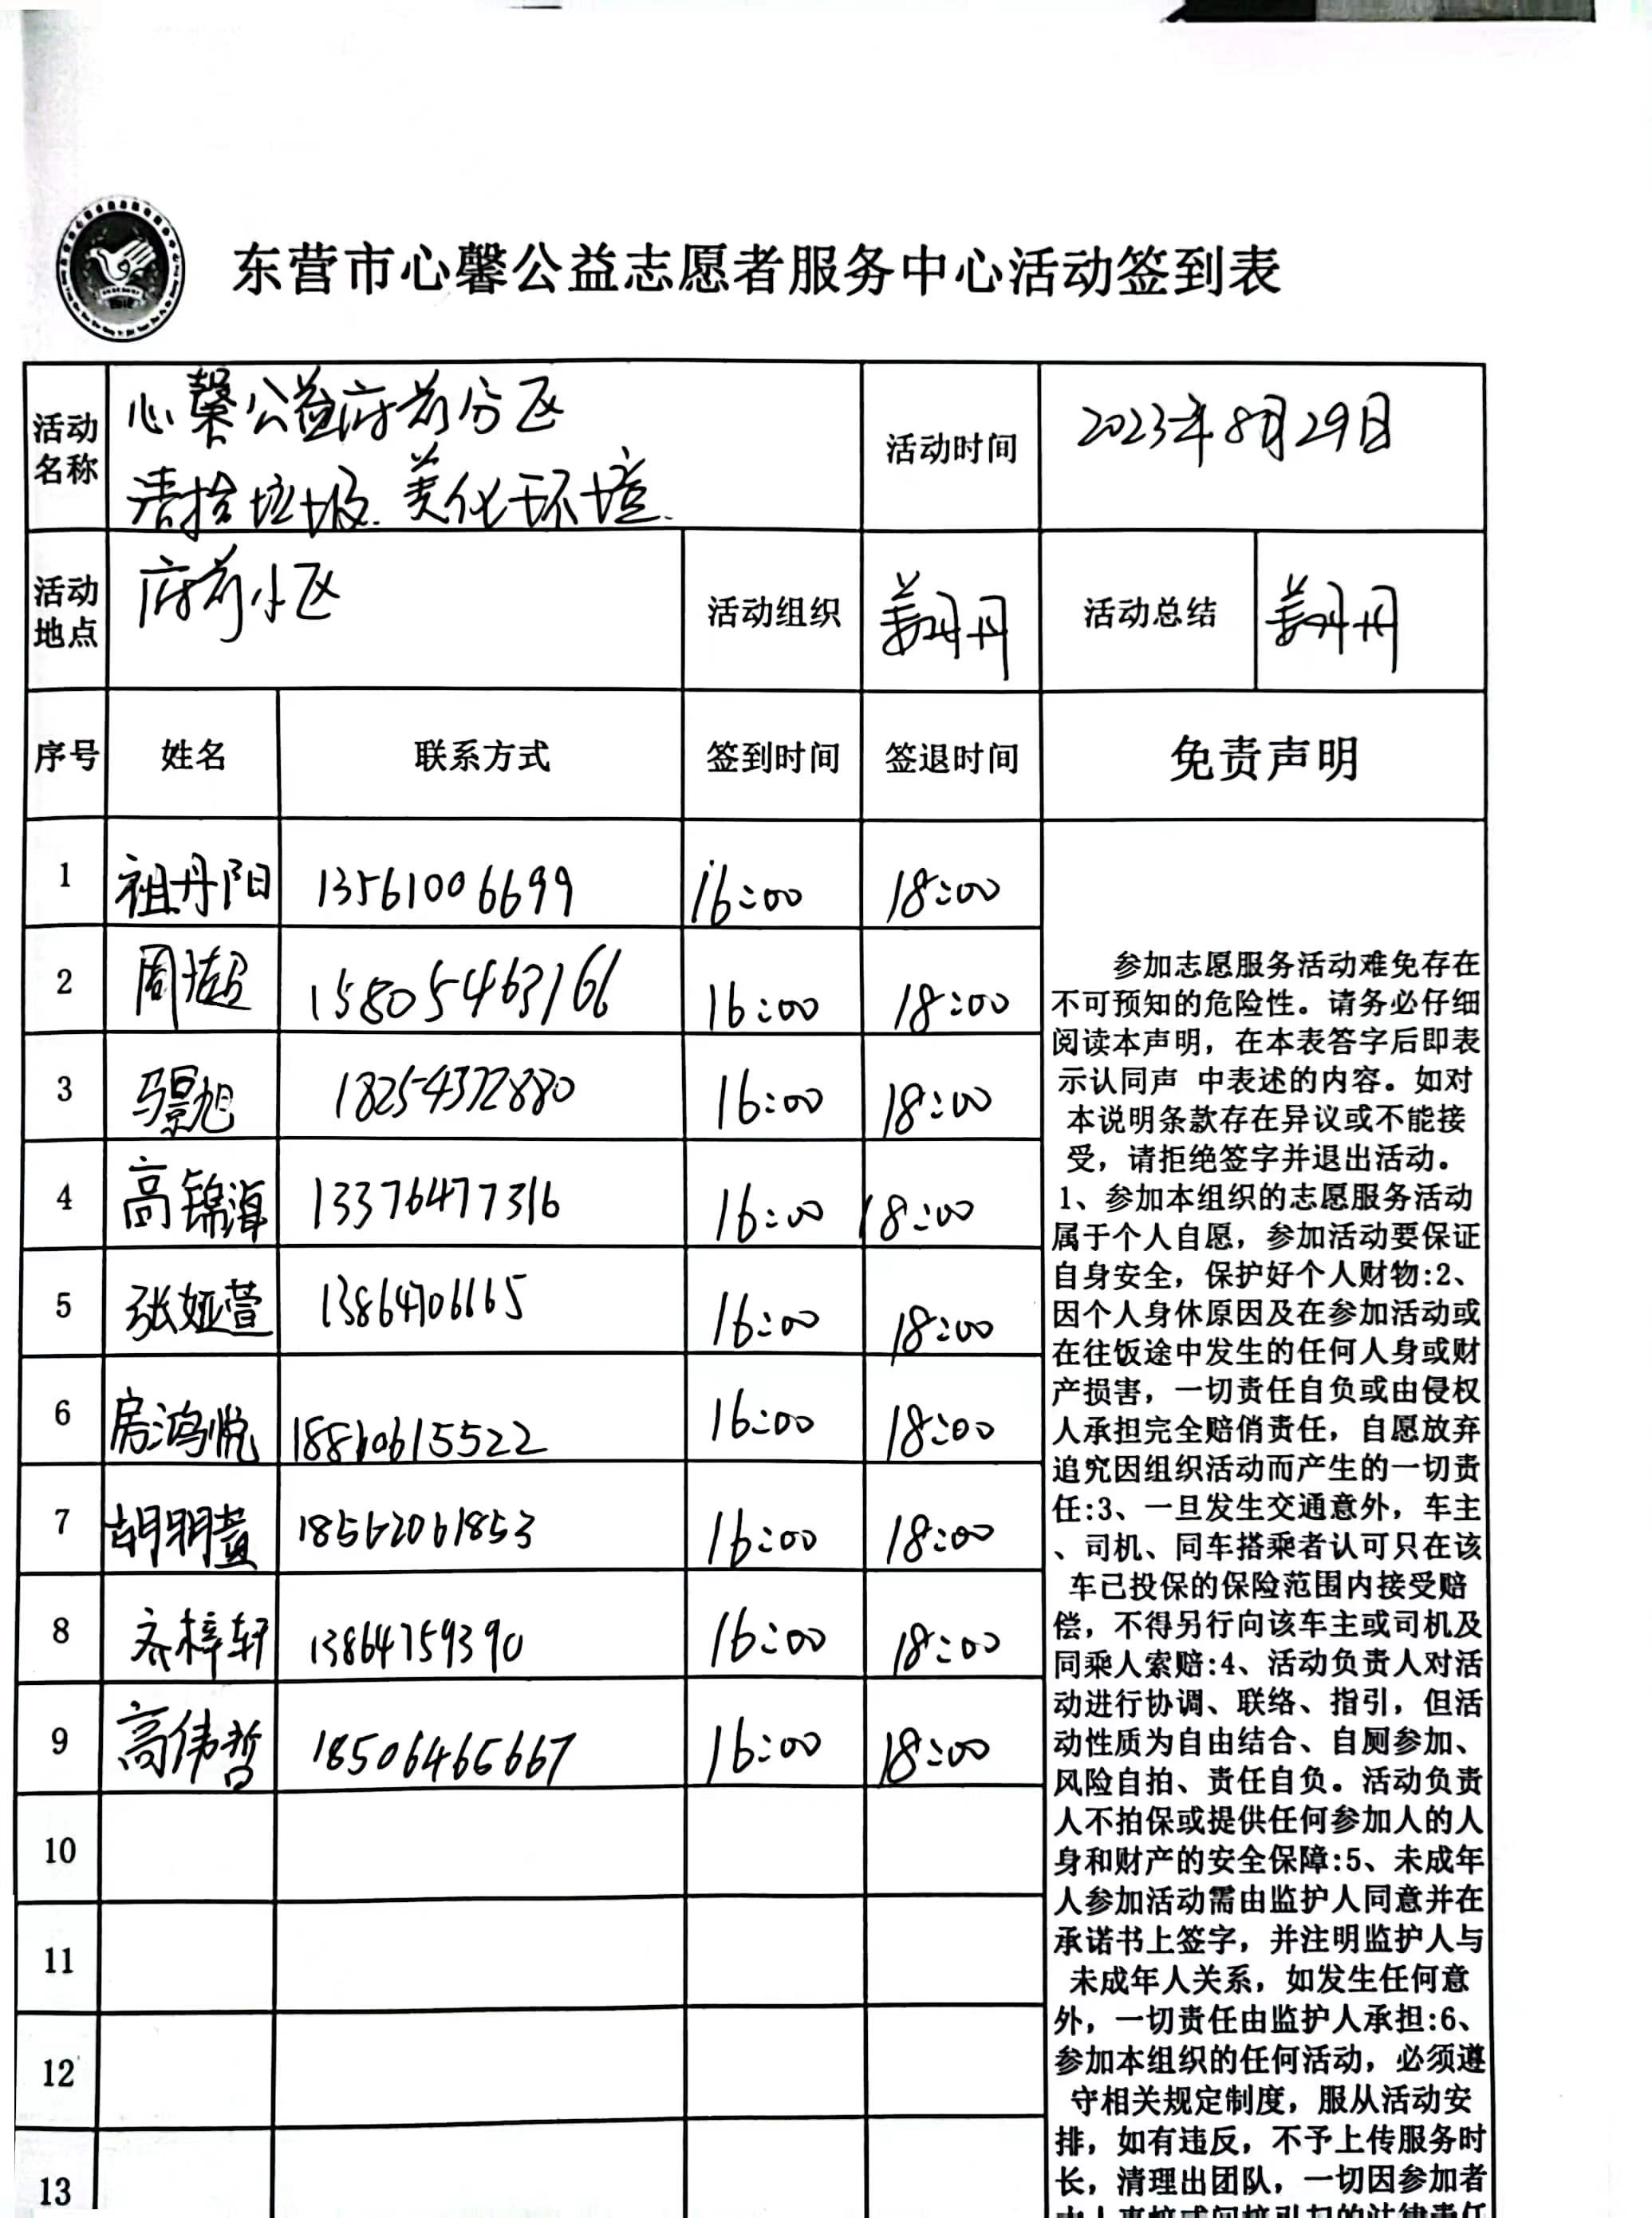 东营市心馨公益志愿者服务中心活动签到表
活动名称
心馨公益府前分区
清捡垃圾.美化环境.
活动时间
2023年8月29日
活动地点
府前小区
活动组织
姜丹丹
活动总结
姜丹丹
序号 姓名 联系方式 签到时间 签退时间 免责声明
1 祖丹阳 13561006699 16:00 18:00
2 周 15805463166 16:00 18:00
3 马景旭 18254372880 16:00 18:00
4 高锦 13376477316 16:00 18:00
5 张娅萱 13864706665 16:00 18:00
6 房鸿悦 16:00 18:00
7 胡玥萱 18562061853 16:00 18:00
8 齐梓轩 13864759390 16:00 18:00
9 高伟哲 18506466667 16:00 18:00
10
11
12
13
参加志愿服务活动难免存在
不可预知的危险性。请务必仔细
阅读本声明，在本表答字后即表
示认同声 中表述的内容。如对
本说明条款存在异议或不能接
受，请拒绝签字并退出活动。
1、参加本组织的志愿服务活动
属于个人自愿，参加活动要保证
自身安全，保护好个人财物:2、
因个人身休原因及在参加活动或
在往饭途中发生的任何人身或财
产损害，一切责任自负或由侵权
人承担完全赔俏责任，自愿放弃
追究因组织活动而产生的一切责
任:3、一旦发生交通意外，车主
、司机、同车搭乘者认可只在该
车已投保的保险范围内接受赔
偿，不得另行向该车主或司机及
同乘人索赔:4、活动负责人对活
动进行协调、联络、指引，但活
动性质为自由结合、自厕参加、
风险自拍、责任自负。活动负责
人不拍保或提供任何参加人的人
身和财产的安全保障:5、未成年
人参加活动需由监护人同意并在
承诺书上签字，并注明监护人与
未成年人关系，如发生任何意
外，一切责任由监护人承担:6、
参加本组织的任何活动，必须遵
守相关规定制度，服从活动安
排，如有违反，不予上传服务时
长，清理出团队，一切因参加者